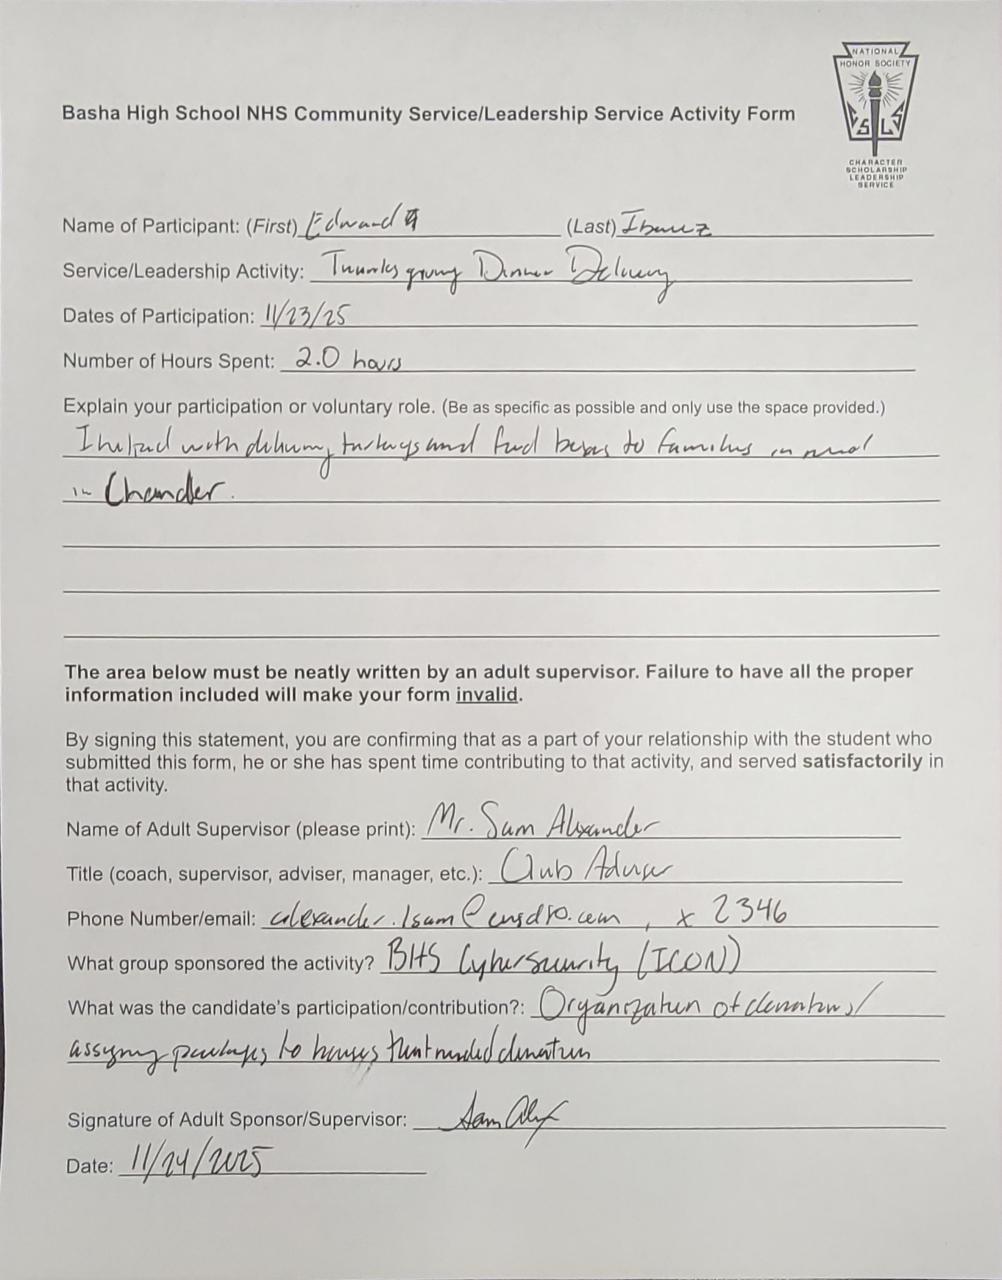 NATIONAL
HONOR SOCIETY
S L S
CHARACTER
SCHOLARSHIP
LEADERSHIP
SERVICE
Basha High School NHS Community Service/Leadership Service Activity Form
Name of Participant: (First) Edward (Last) Ibanez
Service/Leadership Activity: Thanksgiving Dinner Delivery
Dates of Participation: 11/23/25
Number of Hours Spent: 2.0 hours
Explain your participation or voluntary role. (Be as specific as possible and only use the space provided.)
I helped with delivering turkeys and food boxes to families in need
in Chandler.
The area below must be neatly written by an adult supervisor. Failure to have all the proper
information included will make your form invalid.
By signing this statement, you are confirming that as a part of your relationship with the student who
submitted this form, he or she has spent time contributing to that activity, and served satisfactorily in
that activity.
Name of Adult Supervisor (please print): Mr. Sam Alexander
Title (coach, supervisor, adviser, manager, etc.): Club Adviser
Phone Number/email: x 2346
What group sponsored the activity? BHS Cybersecurity (ICON)
What was the candidate's participation/contribution?: Organization of donations/
assigning packages to houses that needed donation
Signature of Adult Sponsor/Supervisor: Sam Alex
Date: 11/24/2025